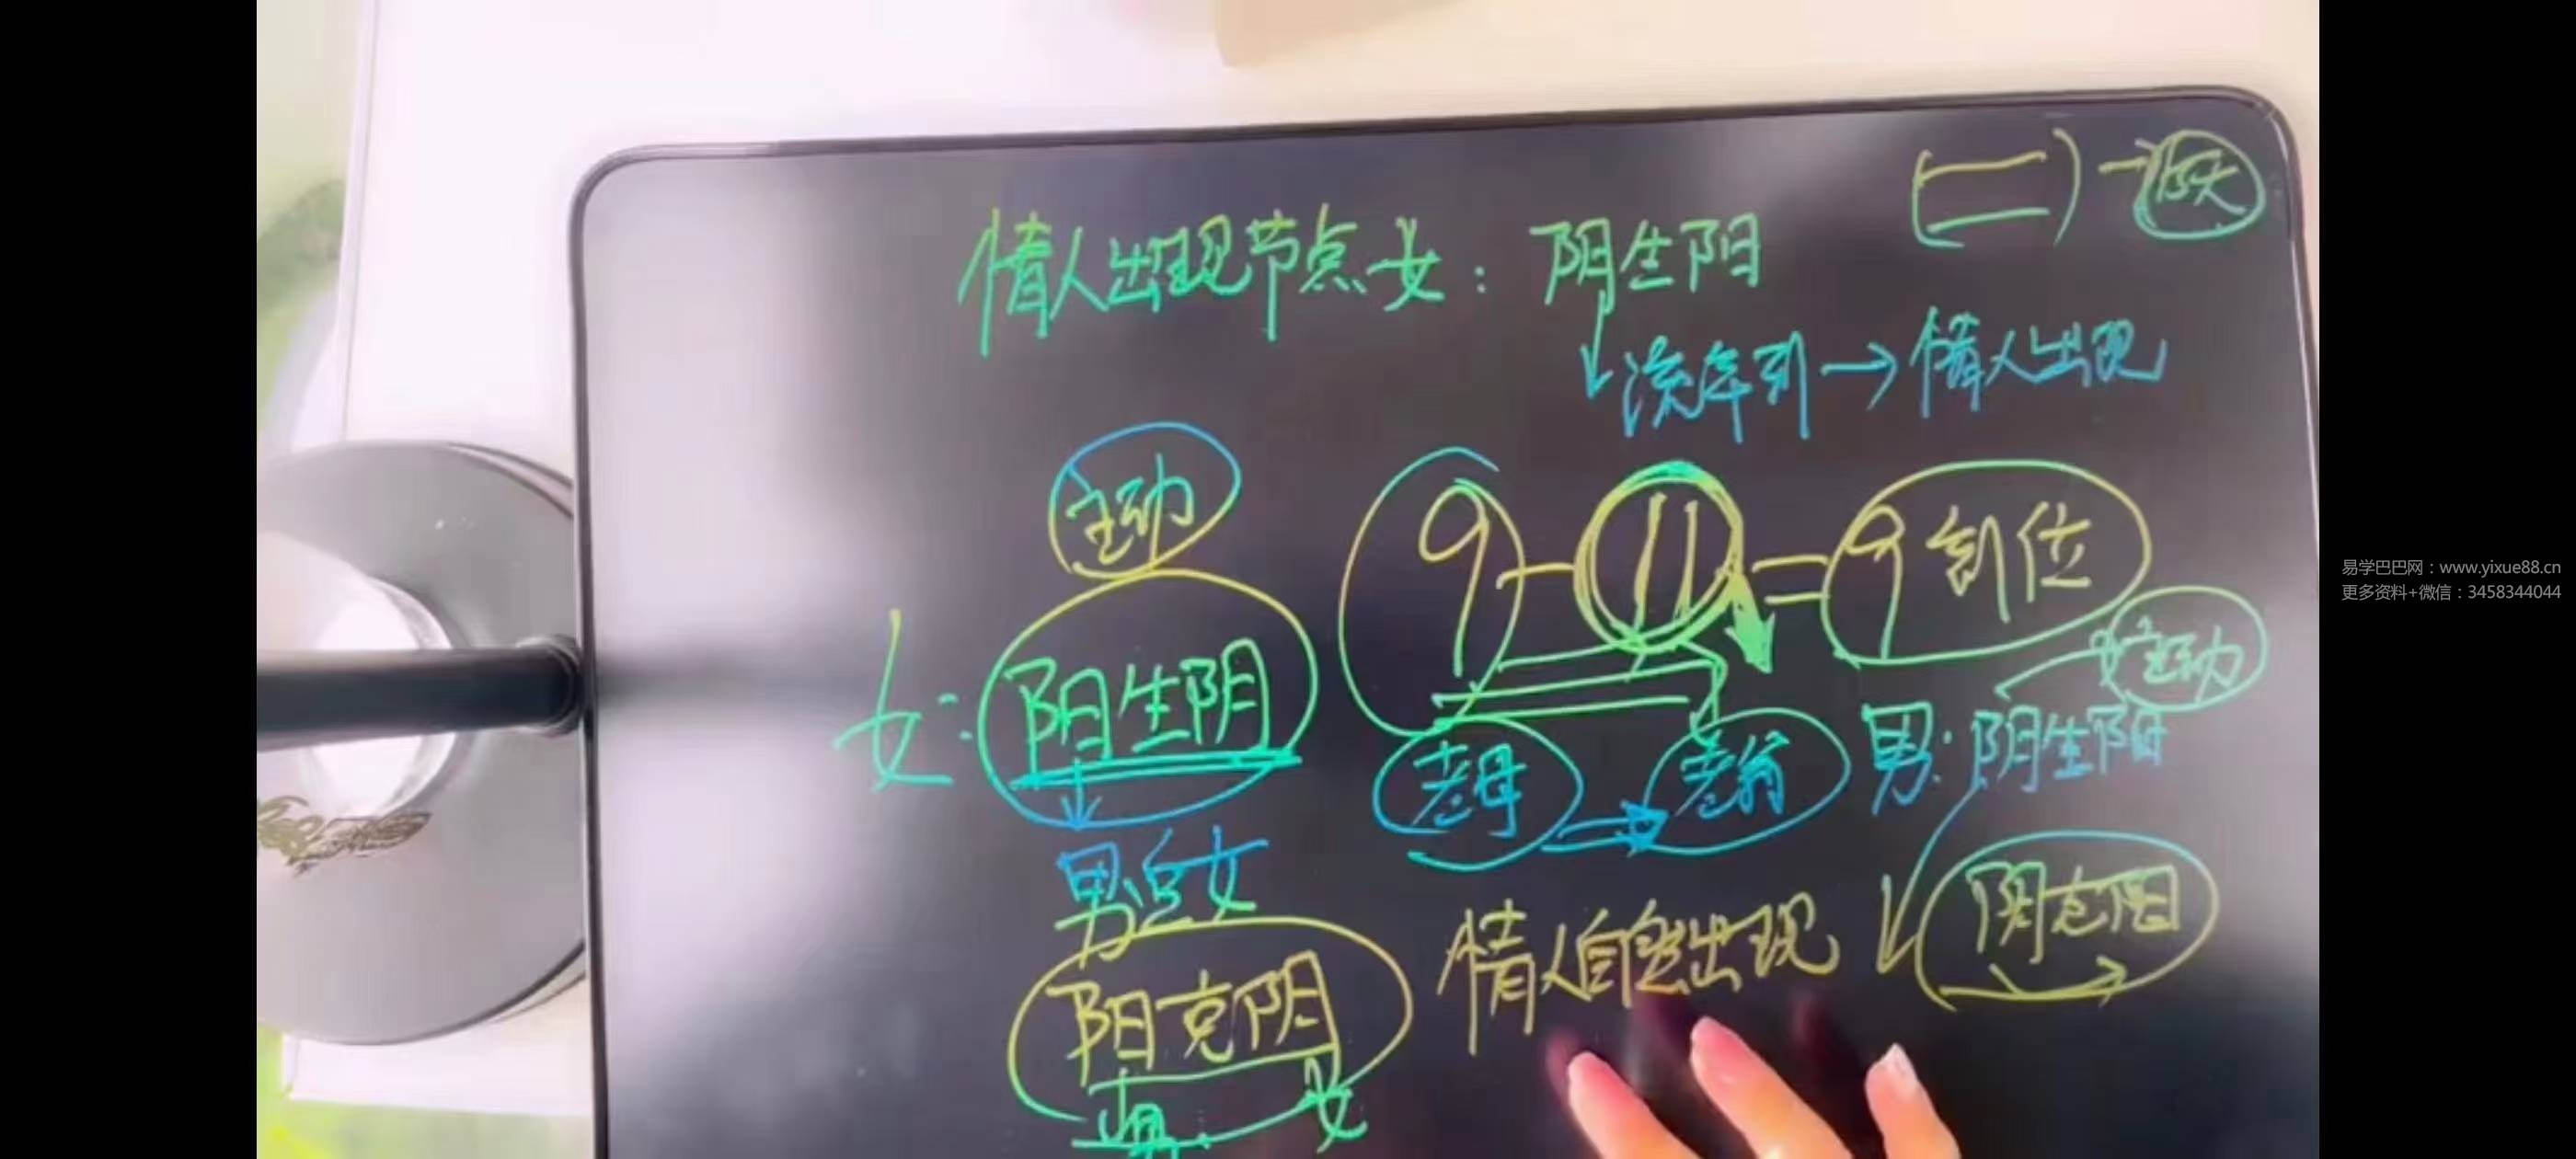 情人出现节点女：阴生阳
流年引→情人出现
主动
9－11＝9到位
主动
女：阳生阴
老母→老翁
男：阴生阳
男追女
情人自然出现
阴克阳
阳克阴
男 女
易学巴巴网：www.yixue88.cn
更多资料+微信：3458344044